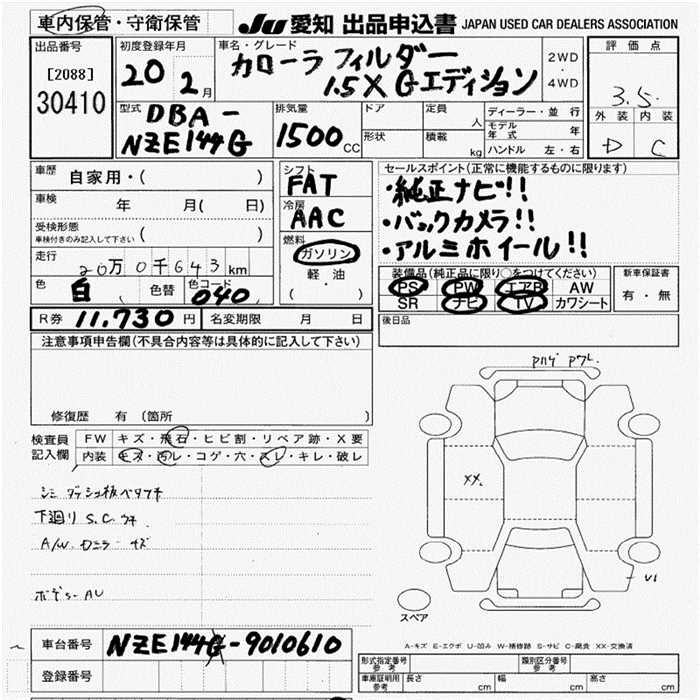 車内保管・守衛保管 JU 愛知 出品申込書 JAPAN USED CAR DEALERS ASSOCIATION
出品番号
[2088]
30410
初度登録年月
20 2月
車名・グレード
カローラ フィルダー
1.5X Gエディション
2WD
・
4WD
評価点
3.5
外装 内装
D C
型式
DBA-
NZE144G
排気量
1500cc
ドア
形状
定員 人
積載 kg
ディーラー・並行
モデル年式 年
ハンドル 左・右
車歴 自家用・( )
車検 年 月( 日)
受検形態
車検付きのみ記入して下さい ( )
走行 20万0千643km
色 白 色替 色コード 040
シフト
FAT
冷房
AAC
燃料
ガソリン
軽油
( )
セールスポイント(正常に機能するものに限ります)
・純正ナビ!!
・バックカメラ!!
・アルミホイール!!
装備品(純正品に限り○をつけてください)
PS PW エアB AW
SR ナビ TV カワシート
新車保証書
有・無
R券 11,730円 名変期限 月 日
後日品
注意事項申告欄(不具合内容等は具体的に記入して下さい)
修復歴 有(箇所
検査員記入欄
FW キズ・飛石・ヒビ割・リペア跡・X要
内装 キズ・汚レ・コゲ・穴・スレ・キレ・破レ
下廻り S.C.
A/W キズ
XX.
U1
スペア
A-キズ E-エクボ U-凹み W-補修跡 S-サビ C-腐食 XX-交換済
車台番号 NZE144G-9010610
登録番号
形式指定番号 参考
類別区分番号 参考
車庫証明用 参考 長さ cm 幅 cm 高さ cm